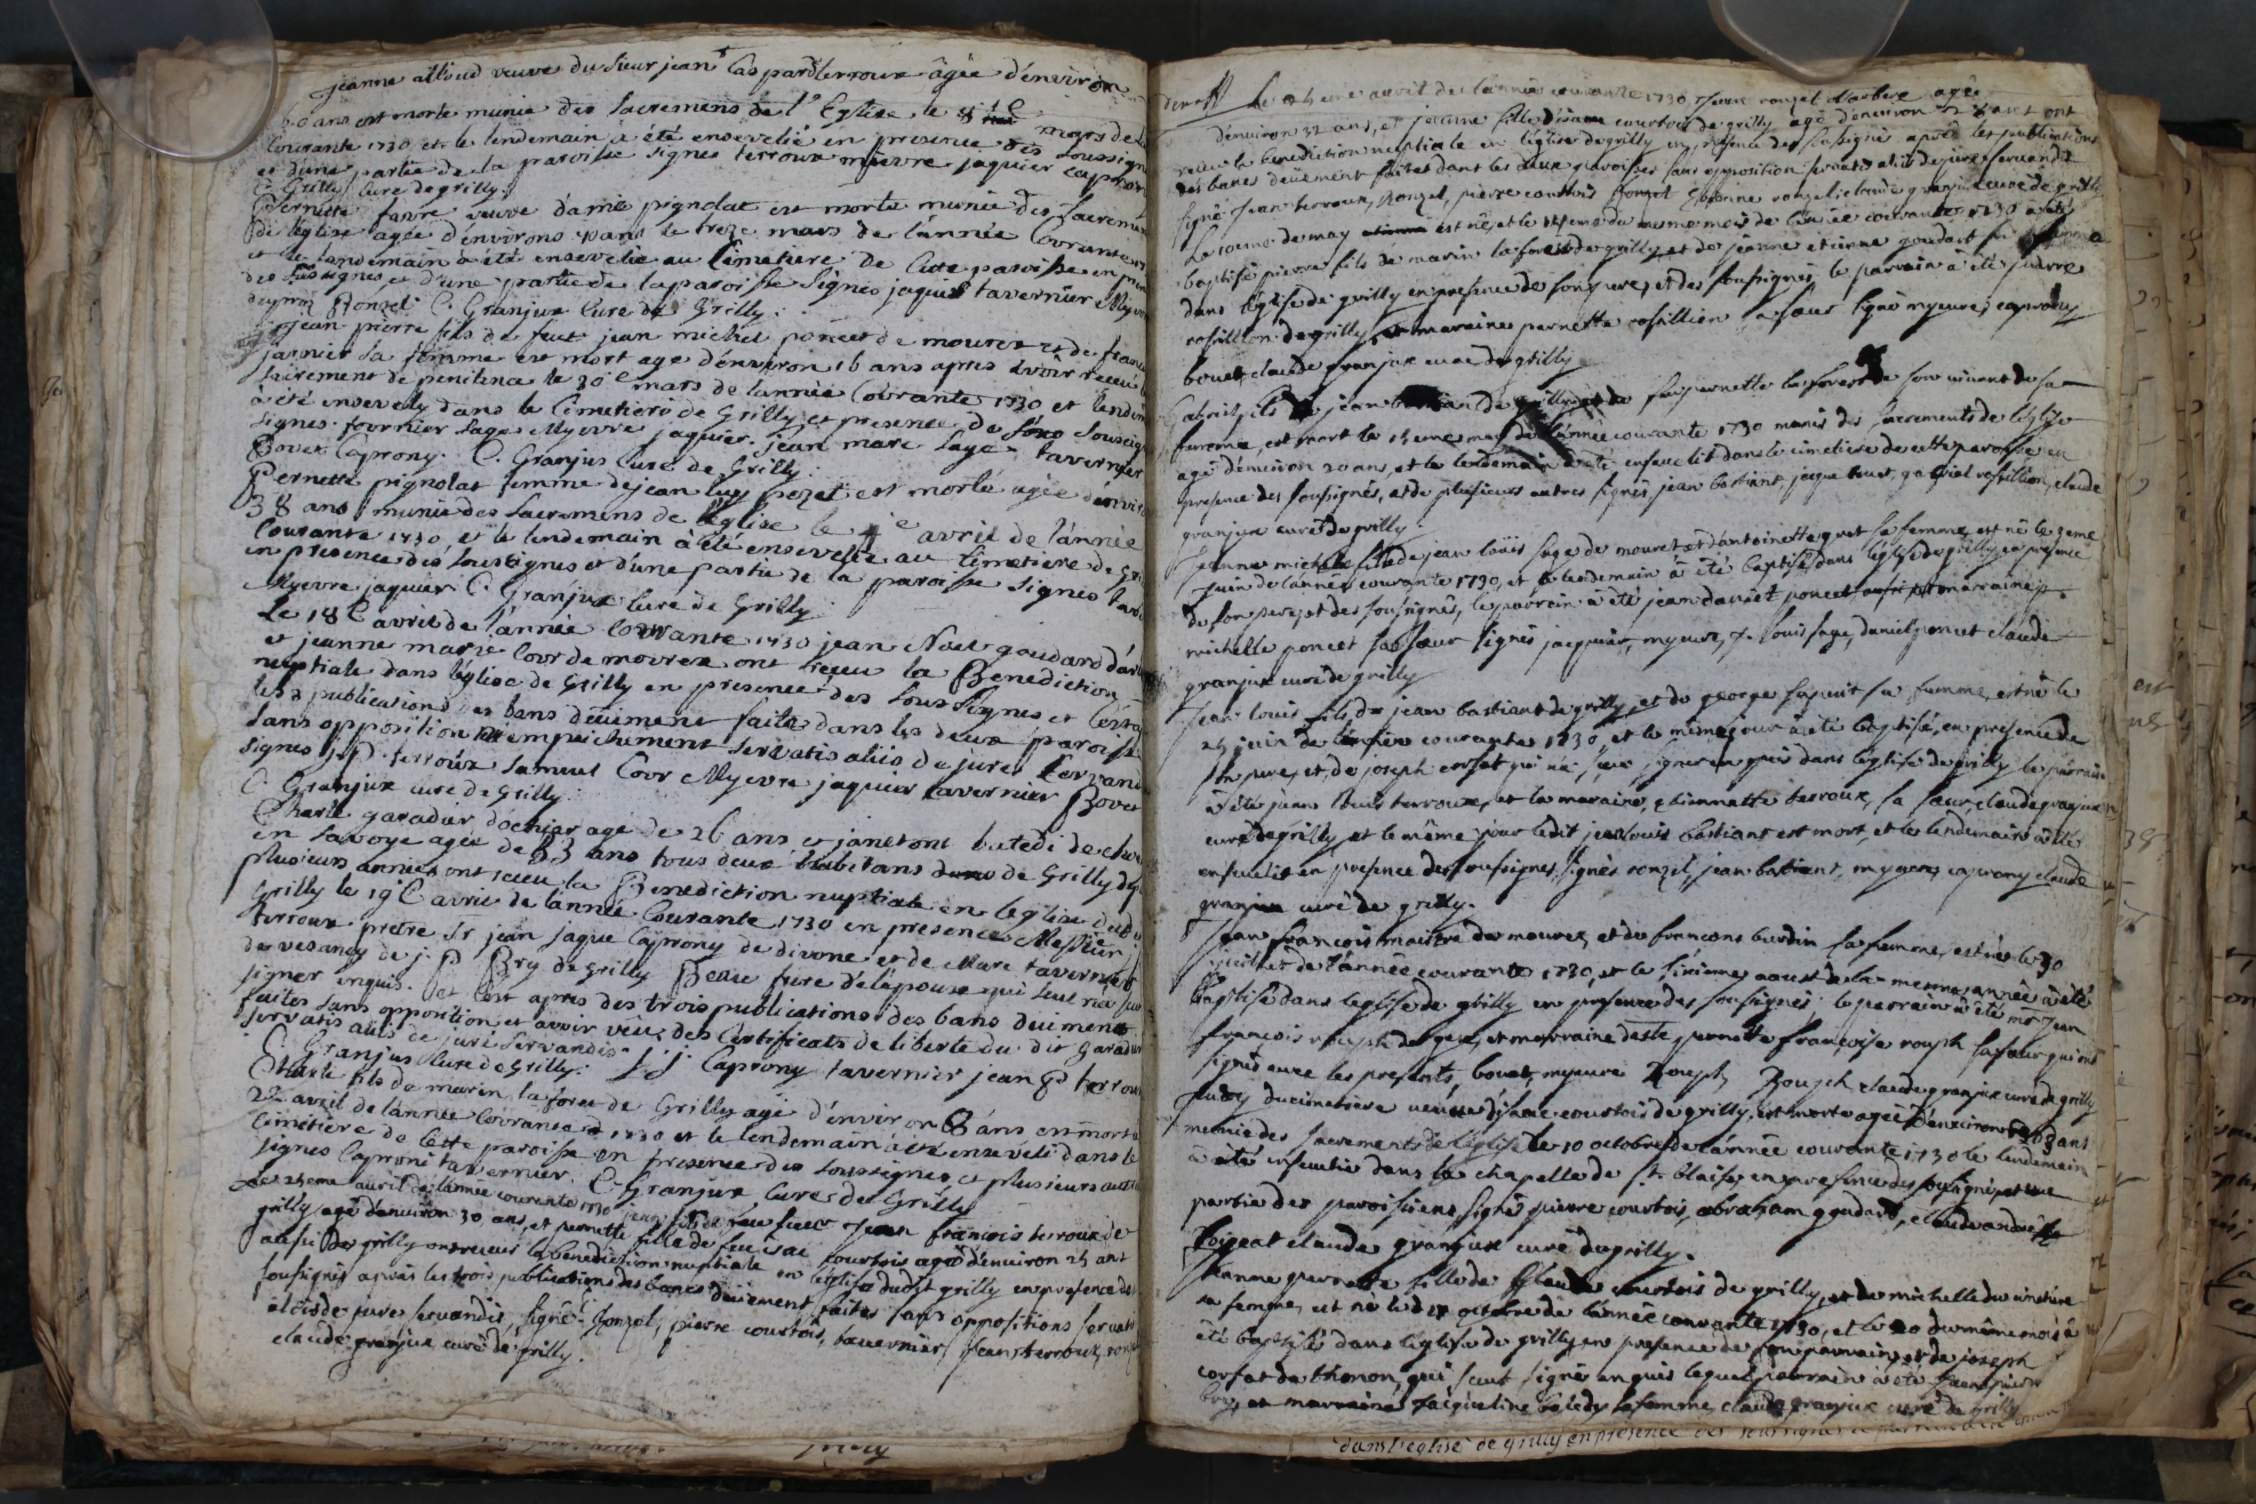 jeanne alloud veuve du sieur jean Caspard terroux âgée d'environ
60 ans est morte munie des sacremens de l'Eglise le 8e mars de
Courante 1730 et le lendemain a été ensevelie en presence des soussign
et d'une partie de la paroisse signes terroux myevre jaquier caprony
C. Grilly Cure de grilly.
Pernette favre veuve d'amé pignolat est morte munie des sacremen
de l'église agée d'environs 40 ans le treze mars de l'année Courante
et le landemain a été ensevelie au Cimetiere de Cete paroisse en pre
des sussignes et d'une partie de la paroisse Signes jaquier tavernier Myevre
Ronzel C. Granjux Cure de Grilly.
jean pierre fils de feut jean michel poncet de mourex et de franc
jarnier sa femme est mort age d'environ 16 ans apres avoir receu
sacrement de penitence le 30e mars de l'année Courante 1730 et lendem
à été ensevely dans le Cimetiere de Grilly et presence de Soussig
signes fournier sage Myevre jaquier. jean marc sage tavernier
Bovet Caprony. C. Granjux Cure de Grilly.
Pernette pignolat femme de jean luy pozet est morte agée d'envir
38 ans munie des Sacremens de l'église le 4e avril de l'année
Courante 1730 et le lendemain à été ensevelie au Cimetiere de Gr
in presence des soussignes et d'une partie de la paroisse signes tav
Myevre jaquier C. Granjux Cure de Grilly
Le 18e avril de l'année Courante 1730 jean Noel goudard d'ar
et jeanne marie Cour de mourex ont receu la Benediction
nuptiale dans l'église de Grilly en presence des sous signes et
les 3 publications es bans deuiment faits dans les deux paroisse
Sans opposition ni empeichement servatis aliis de jure Servand
signes J. P. terroux Samuel Cour Myevre jaquier tavernier Bovet
C. Granjux cure de Grilly.
Charle garadier d'ochiaz agé de 26 ans et janeton batedi de che
en savoye agée de 33 ans tous deux habitans de Grilly de
plusieurs années ont receu la Benediction nuptiale en l'eglise dud
Grilly le 19e avril de l'année Courante 1730 en presence Messieur
terroux pretre Sr jean jaque Caprony de divone et de Marc tavernier
de vesancy de j. P Bry de Grilly Beau frere de l'épouse qui seul n'a sçu
signer enquis. et C'est apres des trois publications des bans duiment
faites sans opposition et avoir vëu des Certificats de liberté du dit Garadier
servatis aliis de jure Servandis
C. Granjus Cure de Grilly. j. j. Caprony tavernier jean P terrou
Charle fils de marin la foret de Grilly agé d'environ 8 áns est mort
22 avril de l'année Courante 1730 et le lendemain a été enseveli dans le
Cimetiere de Cette paroisse en presence des soussignes et plusieurs autre
signes Caproni tavernier. C Granjux Cure de Grilly
Le 25eme avril de l'année courante 1730 jean fils de feu sieur Jean francois terroux de
grilly agé d'environ 30 ans, et pernette fille de feu isac courtois agée d'environ 25 ans
aussi de grilly ont receu la benediction nuptiale en l'église dudit grilly en presence des
sousignés après les trois publications des bancs deuiement faites sans oppositions servatis
aliis de jure servandis, signé Ronzel, pierre courtois, tavernier, Jean terroux,
claude granjux curé de grilly.
Le 25eme avril de l'année courante 1730 Jean ronzel d'arbere agé
d'environ 32 ans, et jeanne fille d'isaac courtois de grilly agé d'environ 22 ans ont
receu la benediction nuptiale en l'église de grilly en présence des sousignés après les publications
des bancs deüement faites dans les deux paroisses sans opposition servatis aliis de jure servandis
signé Jean terroux, Ronzel, pierre courtois Ronzel, claude granjux curé de grilly
Le 10eme de may est né, et le du meme mois de l'année courante 1730 a été
baptisé pierre fils de marin la foret de grilly et de jeanne etienne goudard sa femme
dans l'église de grilly en presence de son pere, et des sousignés, le parrain à été pierre
rosillion de grilly, et maraine pernette rosillion sa sœur signé myevre, caprony
bouet, claude granjux curé de grilly
Gabriel fils de jean bastian de grilly et de feu pernette la foret de son vivant de sa
femme, est mort le 15eme may de l'année courante 1730 munis des sacrements de l'église
agé d'environ 20 ans, et le lendemain à été enseuelit dans le cimetiere de cette paroisse en
presence des sousignés, et de plusieurs autres signés, jean bastiant, jaque bouet, gabriel rosillion, claude
granjux curé de grilly.
Jeanne michelle fille de jean loüis sage de mouret et d'antoinette gret sa femme, est né le 3eme
juin de l'année courante 1730, et le lendemain à été baptisé dans l'église de grilly en presence
de son pere, et des sousignés, le parrain à été jean daniel poncet, et marraine p.
michelle poncet sa sœur signés jacquier, myevre, J. louis sage, daniel poncet claude
granjux curé de grilly
Jean louis fils de jean bastiant de grilly, et de george sa femme, est né le
25 juin de l'année courante 1730, et le même jour à été baptisé, en présence de
son pere, et de joseph corsat qui n'a sçeu signer enquis dans l'église de grilly le parrain
à été jean louis terroux, et la maraine, etiennette terroux, sa sœur, claude granjux
curé de grilly, et le même jour ledit jean louis bastiant est mort, et le lendemain à été
enseuelit en presence des sousignes, signés ronzel, jean bastiant, myevre, caprony claude
granjux curé de grilly.
Jean François maistre de mourex, et de francoise burdin sa femme, est né le 30
juillet de l'année courante 1730, et le sixieme aoust de la mesme année à été
baptisé dans l'église de grilly en presence des sousignés, le parrain à été mr Jean
françois rouph de gex, et marraine delle pernette françoise rouph sa sœur qui ont
signé avec les presents, bouet, myevre Rouph, Rouph claude granjux curé de grilly
Judy ducimetière veuve d'isaac courtois de grilly, est morte agée d'environ ans
munie des sacrements de l'église le 10 octobre de l'année courante 1730 le lendemain
à été enseuelie dans la chapelle de St. blaise en presence des sousignés et une
partie des paroissiens, signé pierre courtois, abraham goudard, claude andré
Poigeat claude granjux curé de grilly.
Jeanne pernette fille de Claude courtois de grilly, et de michelle du cimetiere
sa femme, est né le d 17 octobre de l'année courante 1730, et le 20 du même mois à
été baptisé dans l'église de grilly en presence de son parrain, et de joseph
corsat de thonon, qui sçait signé enquis lequel parrain à été jean pierre
bry, et marraine Jacqueline batedy sa femme, claude granjux curé de grilly
dans l'eglise de grilly en presence des soussignes le parrain a été